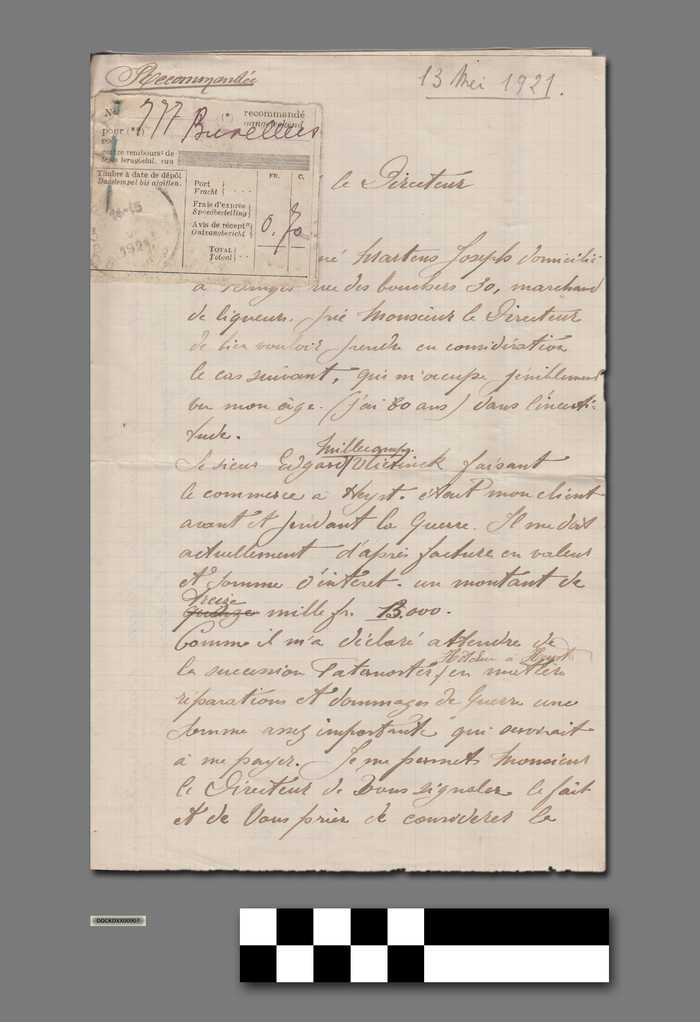 Recommandée
13 Mei 1921.
No 777 (* recommandé
aangeteekend
pour (*) Bruxelles
contre rembours. de
Timbre à date de dépôt
Dagstempel bis afgiften.
FR. C.
Port
Fracht
Frais d'exprès
Spoedbestelling
Avis de récept.
Ontvangbericht
0. 70
TOTAL
Totaal
1921
le Directeur
né Martens Joseph domicilié
à rue des bouchers 30, marchand
de liqueurs. prié Monsieur le Directeur
de bien vouloir prendre en considération
le cas suivant, qui m'occupe péniblement
vu mon âge. (j'ai 80 ans) dans l'incerti-
tude.
Millecamps
Le sieur Edgard Vlietinck faisant
le commerce a Heyst. était mon client
avant et pendant la Guerre. Il me doit
actuellement d'après facture en valeur
et somme d'intéret. un montant de
treize
quinze mille fr. 13.000.
Comme il m'a déclaré attendre de
à Heyst
la succession Paternoster en
réparations et dommages de Guerre une
somme assez importante qui servirait
à me payer. Je me permets Monsieur
le Directeur de Vous signaler le fait
et de Vous prier de considerer la
DDCKDXX00907